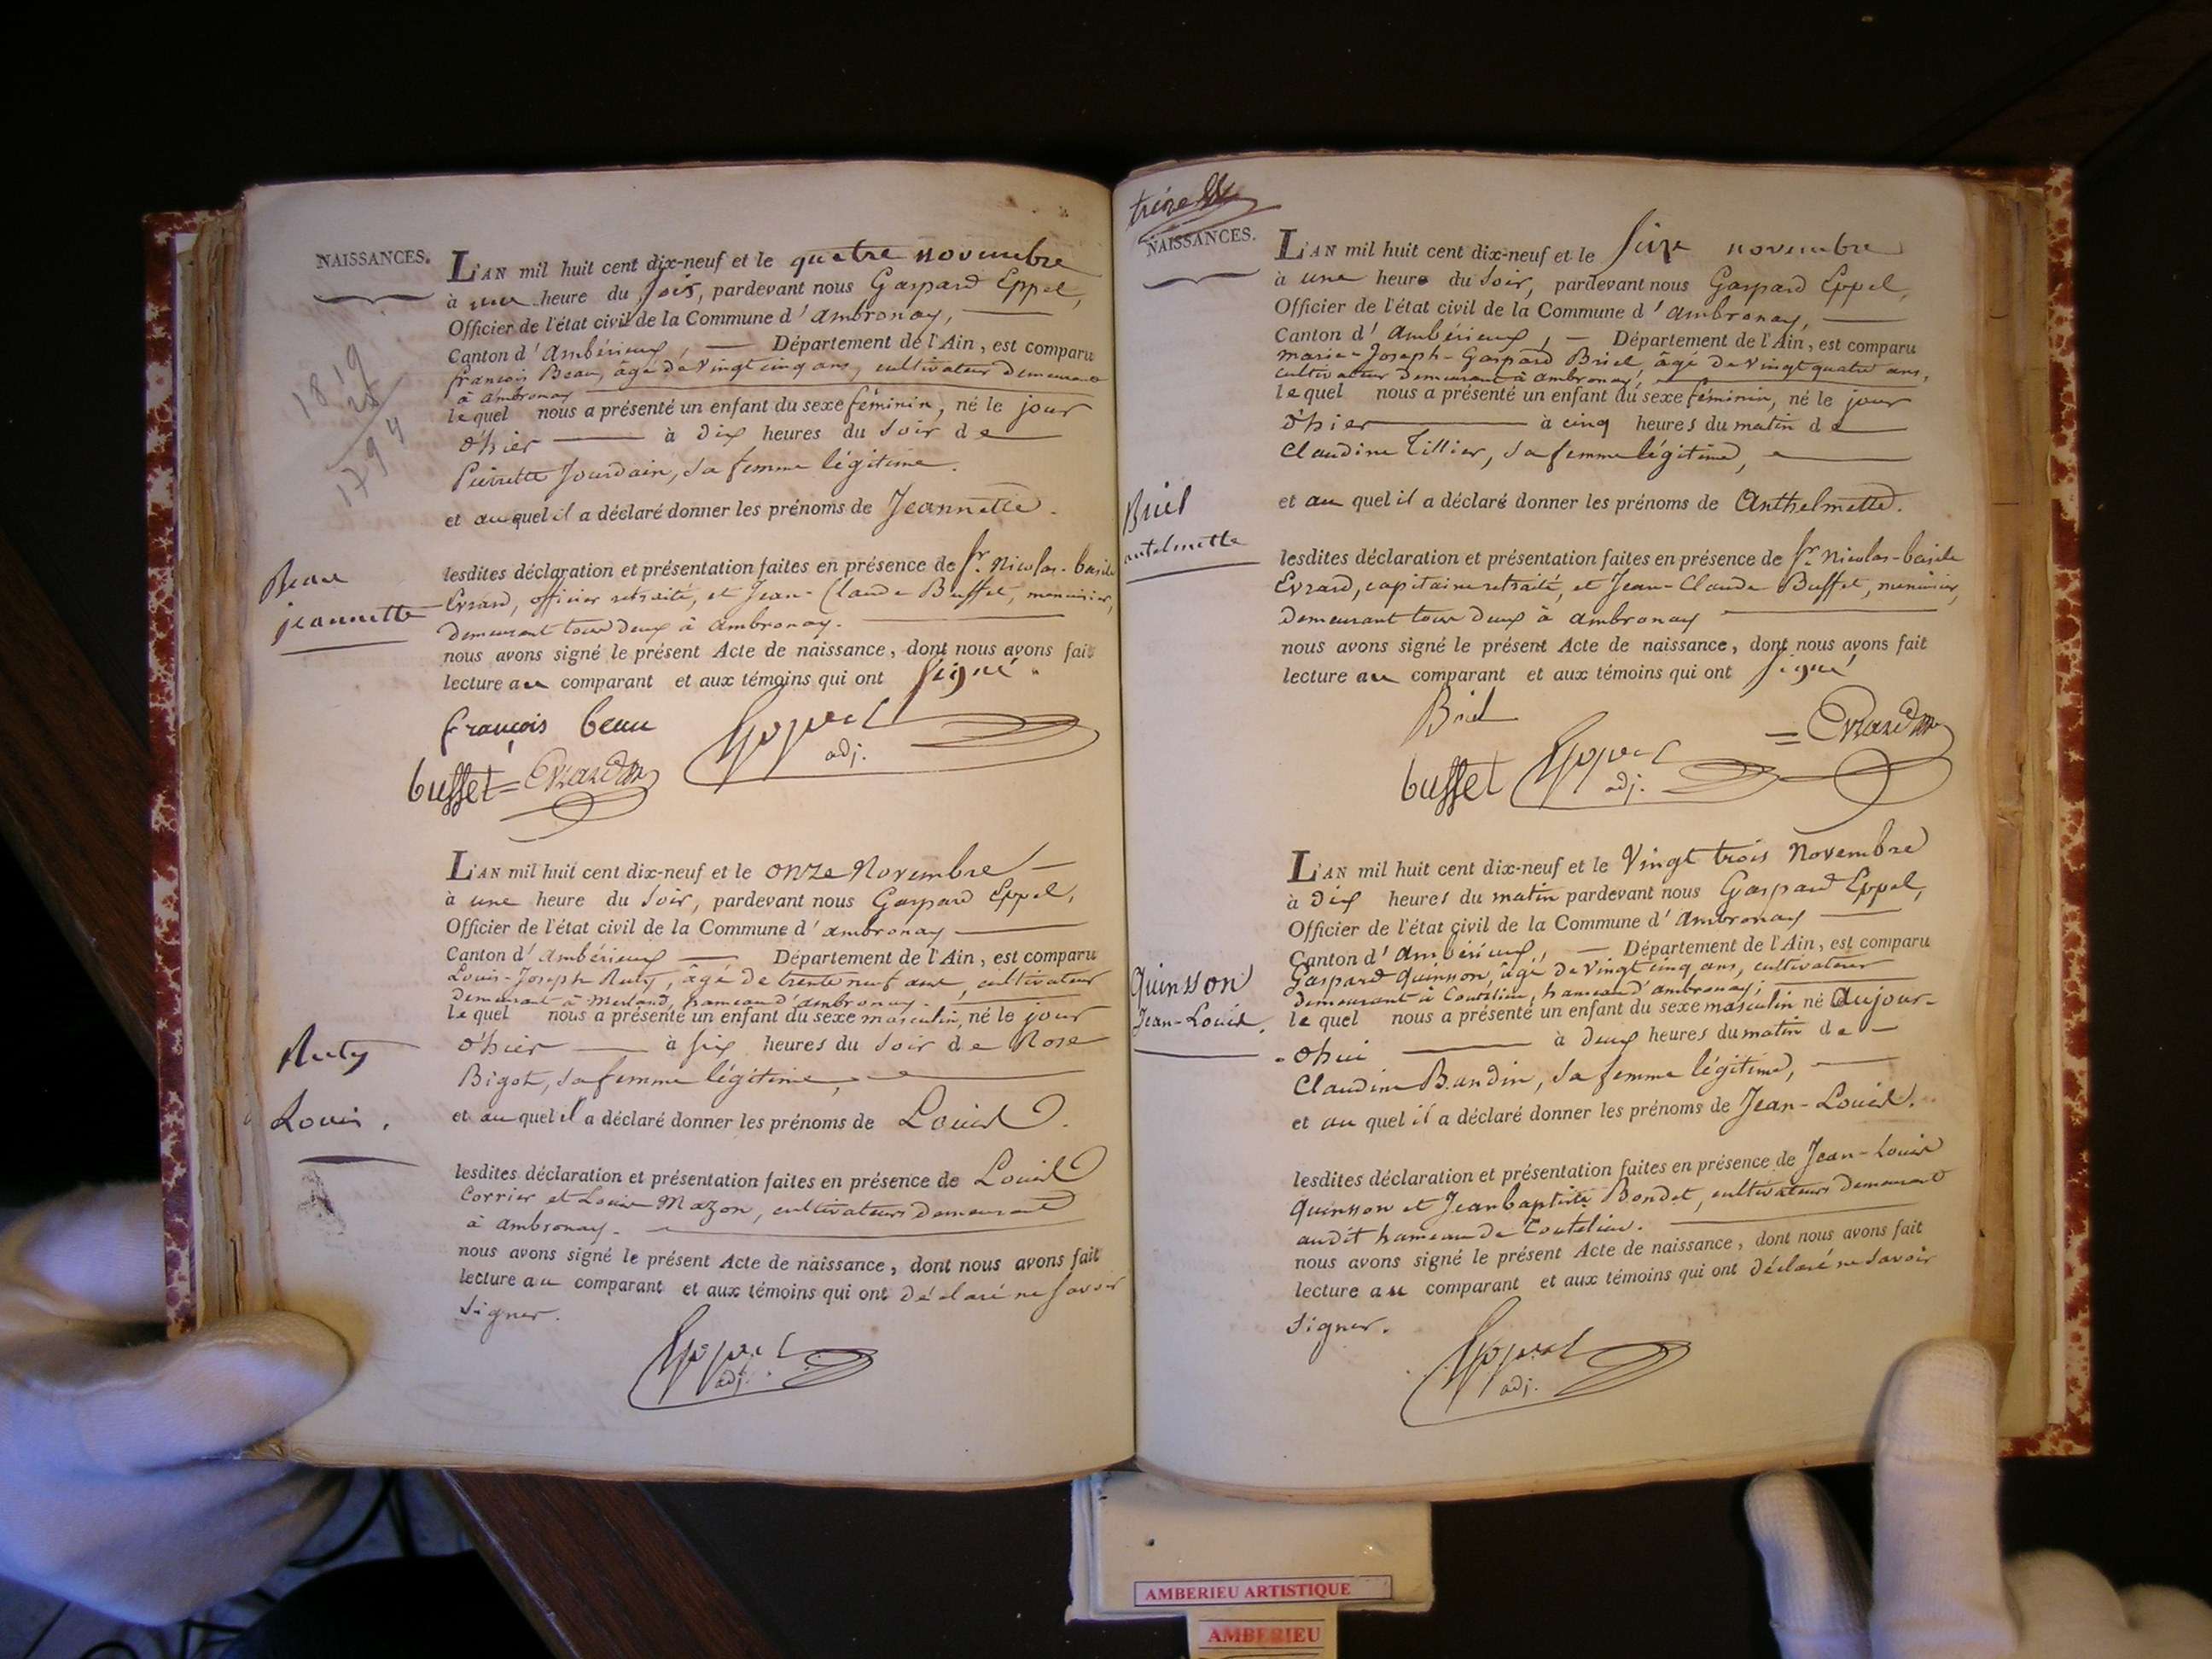 NAISSANCES.
L'AN mil huit cent dix-neuf et le quatre novembre
à une heure du soir, pardevant nous Gaspard Eppel,
Officier de l'état civil de la Commune d'ambronay,
Canton d'ambérieux, — Département de l'Ain, est comparu
françois Beau, âgé de vingt cinq ans, cultivateur demeurant
à ambronay
lequel nous a présenté un enfant du sexe féminin, né le jour
d'hier à dix heures du soir de
Pierrette Jourdain, sa femme légitime.
et auquel il a déclaré donner les prénoms de Jeannette.
lesdites déclaration et présentation faites en présence de Sr. Nicolas-basile
Evrard, officier retraité, et Jean-Claude Buffet, menuisier,
demeurant tous deux à ambronay.
nous avons signé le présent Acte de naissance, dont nous avons fait
lecture au comparant et aux témoins qui ont signé.
1819
25
1794
Beau
jeannette
françois beau
Eppel
adj.
buffet = Evrard
L'AN mil huit cent dix-neuf et le onze Novembre —
à une heure du soir, pardevant nous Gaspard Eppel,
Officier de l'état civil de la Commune d'ambronay
Canton d'ambérieux — Département de l'Ain, est comparu
Louis-Joseph Ruty, âgé de trente neuf ans, cultivateur
demeurant à merland, hameau d'ambronay.
lequel nous a présenté un enfant du sexe masculin, né le jour
d'hier à six heures du soir de Rose
Bigot, sa femme légitime,
et auquel il a déclaré donner les prénoms de Louis.
lesdites déclaration et présentation faites en présence de Louis
Corrier et Louis Mazon, cultivateurs demeurant
à ambronay.
nous avons signé le présent Acte de naissance, dont nous avons fait
lecture au comparant et aux témoins qui ont déclaré ne savoir
signer.
Ruty
Louis.
Eppel
adj.
treize
NAISSANCES.
L'AN mil huit cent dix-neuf et le seize novembre
à une heure du soir, pardevant nous Gaspard Eppel,
Officier de l'état civil de la Commune d'ambronay,
Canton d'ambérieux, — Département de l'Ain, est comparu
marie-Joseph-Gaspard Briel, âgé de vingt quatre ans,
cultivateur demeurant à ambronay,
lequel nous a présenté un enfant du sexe féminin, né le jour
d'hier à cinq heures du matin de
Claudine Tillier, sa femme légitime,
et auquel il a déclaré donner les prénoms de Anthelmette.
lesdites déclaration et présentation faites en présence de Sr. Nicolas-basile
Evrard, capitaine retraité, et Jean-Claude Buffet, menuisier,
demeurant tous deux à ambronay
nous avons signé le présent Acte de naissance, dont nous avons fait
lecture au comparant et aux témoins qui ont signé
Briel
antelmette
Briel
= Evrard
buffet
Eppel
adj.
L'AN mil huit cent dix-neuf et le Vingt trois Novembre
à dix heures du matin pardevant nous Gaspard Eppel,
Officier de l'état civil de la Commune d'ambronay
Canton d'ambérieux, — Département de l'Ain, est comparu
Gaspard Quinson, âgé de vingt cinq ans, cultivateur
demeurant à Coutelieu, hameau d'ambronay;
lequel nous a présenté un enfant du sexe masculin né aujour-
-d'hui à deux heures du matin de —
Claudine Baudin, sa femme légitime,
et auquel il a déclaré donner les prénoms de Jean-Louis.
lesdites déclaration et présentation faites en présence de Jean-Louis
Quinson et Jean baptiste Bondet, cultivateurs demeurant
audit hameau de Coutelieu.
nous avons signé le présent Acte de naissance, dont nous avons fait
lecture au comparant et aux témoins qui ont déclaré ne savoir
signer.
Quinson
Jean-Louis.
Eppel
adj.
AMBERIEU ARTISTIQUE
AMBERIEU